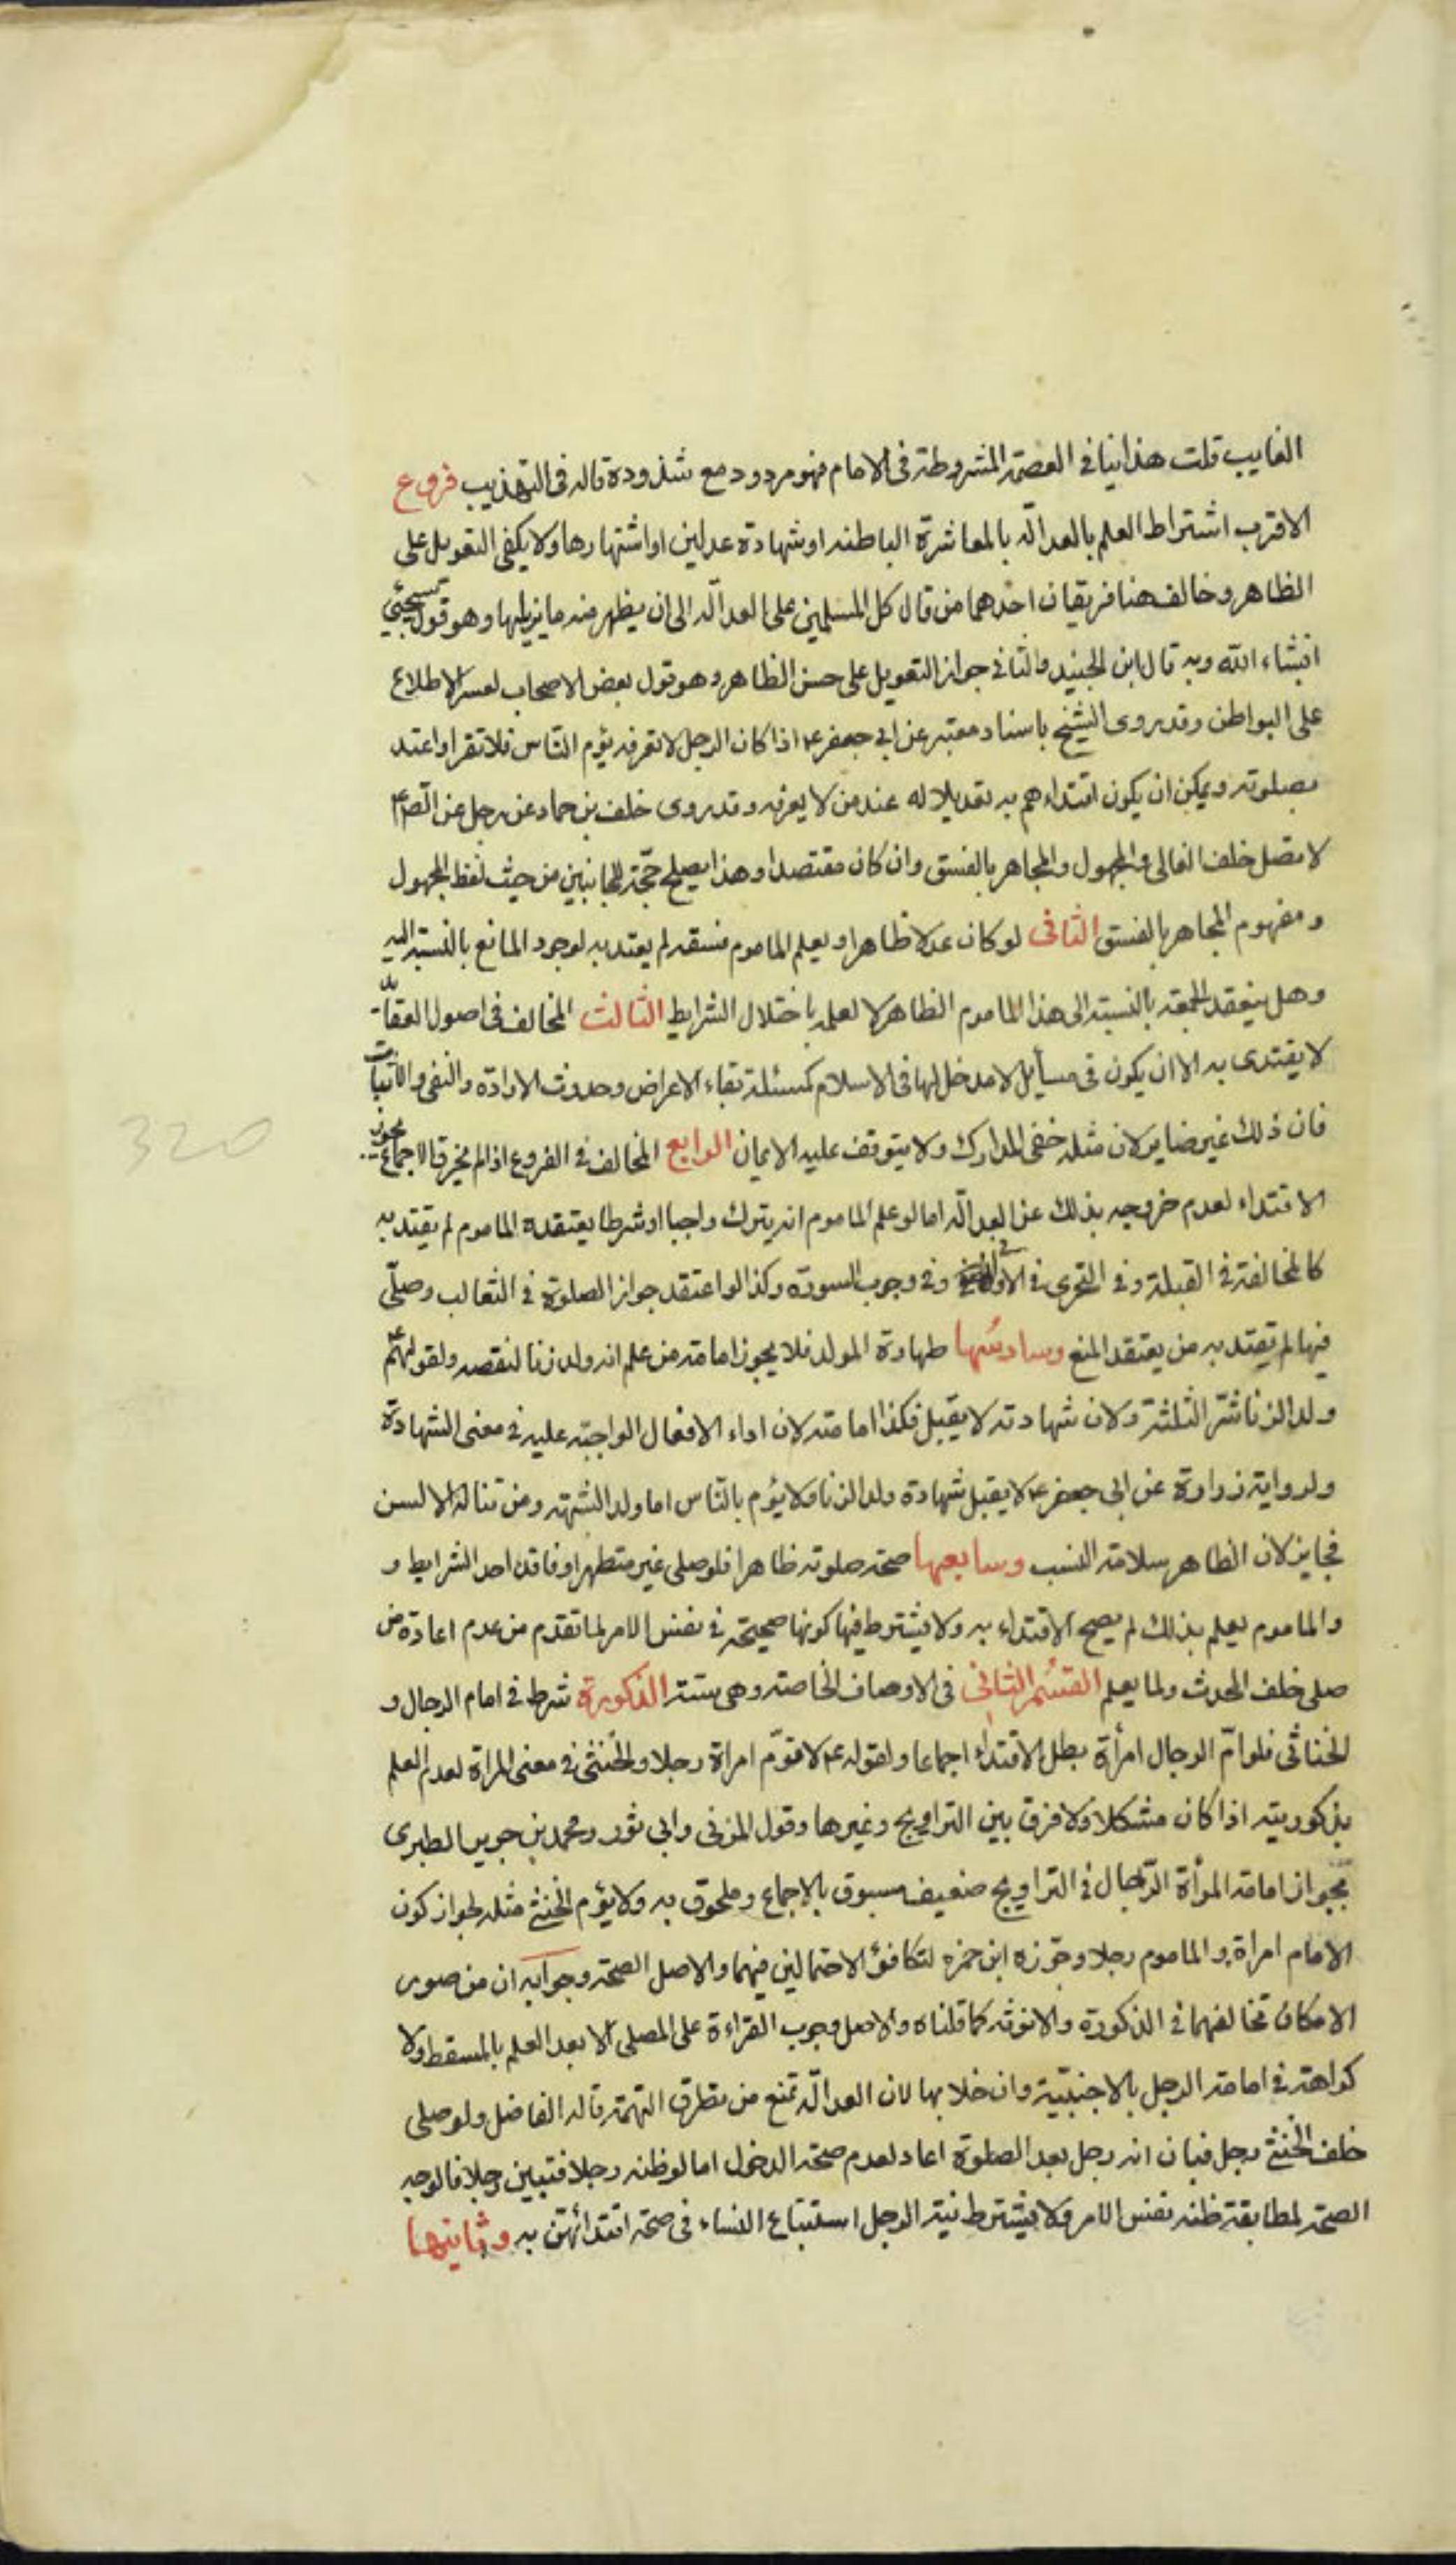 الغايب قلت هذا ينافي العصمة المشروطة في الامام فهو مردود مع شذوذه قاله في التهذيب فروع
الاقرب اشتراط العلم بالعدالة بالمعاشرة الباطنه او شهادة عدلين او اشتهارها ولا يكفي التعويل على
الظاهر وخالف هنا فريقان احدهما من قال كل المسلمين على العدالة الى ان يظهر منه ما يزيلها وهو قول سيجئ
انشاء الله وبه قال ابن الجنيد والثاني جواز التعويل على حسن الظاهر وهو قول بعض الاصحاب لعسر الاطلاع
على البواطن وقد روى الشيخ باسناد معتبر عن ابي جعفر ع اذا كان الرجل لا تعرفه يؤم الناس فلا تقرا واعتد
بصلوته ويمكن ان يكون اقتداءهم به تعديلا له عند من لا يعرفه وقد روى خلف بن حماد عن رجل عن الص ع
لا تصل خلف الغالى والمجهول والمجاهر بالفسق وان كان مقتصدا وهذا يصلح حجة للجانبين من حيث لفظ المجهول
ومفهوم المجاهر بالفسق الثاني لو كان عدلا ظاهرا ويعلم الماموم فسقه لم يعتد به لوجود المانع بالنسبة اليه
وهل ينعقد الجمعة بالنسبة الى هذا الماموم الظاهر لا لعلمه باختلال الشرايط الثالث المخالف في اصول العقايد
لا يقتدى به الا ان يكون في مسايل لا مدخل لها في الاسلام كمسئلة بقاء الاعراض وحدوث الارادة والنفي والاثبات
فان ذلك غير ضاير لان مثله خفي المدارك ولا يتوقف عليه الايمان الرابع المخالف في الفروع اذا لم يخرق الاجماع يجوز
الاقتداء لعدم خروجه بذلك عن العدالة اما لو علم الماموم انه يترك واجبا او شرطا يعتقده الماموم لم يقتد به
كالمخالفة في القبلة وفي التحرى في الاواني وفي وجوب السورة وكذا لو اعتقد جواز الصلوة في الثعالب وصلى
فيها لم يقتد به من يعتقد المنع وسادسها طهارة المولد فلا يجوز امامة من علم انه ولد زنا لنقصه ولقولهم ع
ولد الزنا شر الثلثة ولان شهادته لا يقبل فكذا امامته لان اداء الافعال الواجبة عليه في معنى الشهادة
ولرواية زرارة عن ابي جعفر ع لا يقبل شهادة ولد الزنا ولا يؤم بالناس اما ولد الشبهة ومن تناله الالسن
فجايز لان الظاهر سلامة النسب وسابعها صحة صلوته ظاهرا فلو صلى غير متطهر او فاقد احد الشرايط و
والماموم يعلم بذلك لم يصح الاقتداء به ولا يشترط فيها كونها صحيحة في نفس الامر لما تقدم من عدم اعادة من
صلى خلف المحدث ولما يعلم القسم الثاني في الاوصاف الخاصة وهي ستة الذكورة شرط في امام الرجال و
الخناثى فلو ام الرجال امرأة بطل الاقتداء اجماعا ولقوله ع لا تؤم امراة رجلا والخنثى في معنى المراة لعدم العلم
بذكوريته اذا كان مشكلا ولا فرق بين التراويح وغيرها وقول المزنى وابي ثور ومحمد بن جرير الطبرى
بجواز امامة المرأة الرجال في التراويح ضعيف مسبوق بالاجماع وملحوق به ولا يؤم الخنثى مثله لجواز كون
الامام امراة والماموم رجلا وجوزه ابن حمزه لتكافؤ الاحتمالين فيهما والاصل الصحة وجوابه ان من صور
الامكان تخالفهما في الذكورة والانوثة كما قلناه والاصل وجوب القراءة على المصلى الا بعد العلم بالمسقط ولا
كراهة في امامة الرجل بالاجنبية وان خلا بها لان العدالة تمنع من تطرق التهمة قاله الفاضل ولو صلى
خلف الخنثى رجل فبان انه رجل بعد الصلوة اعاد لعدم صحة الدخول اما لو ظنه رجلا فتبين رجلا فالوجه
الصحة لمطابقة ظنه نفس الامر ولا يشترط نية الرجل استتباع النساء في صحة اقتدائهن به وثانيها
320